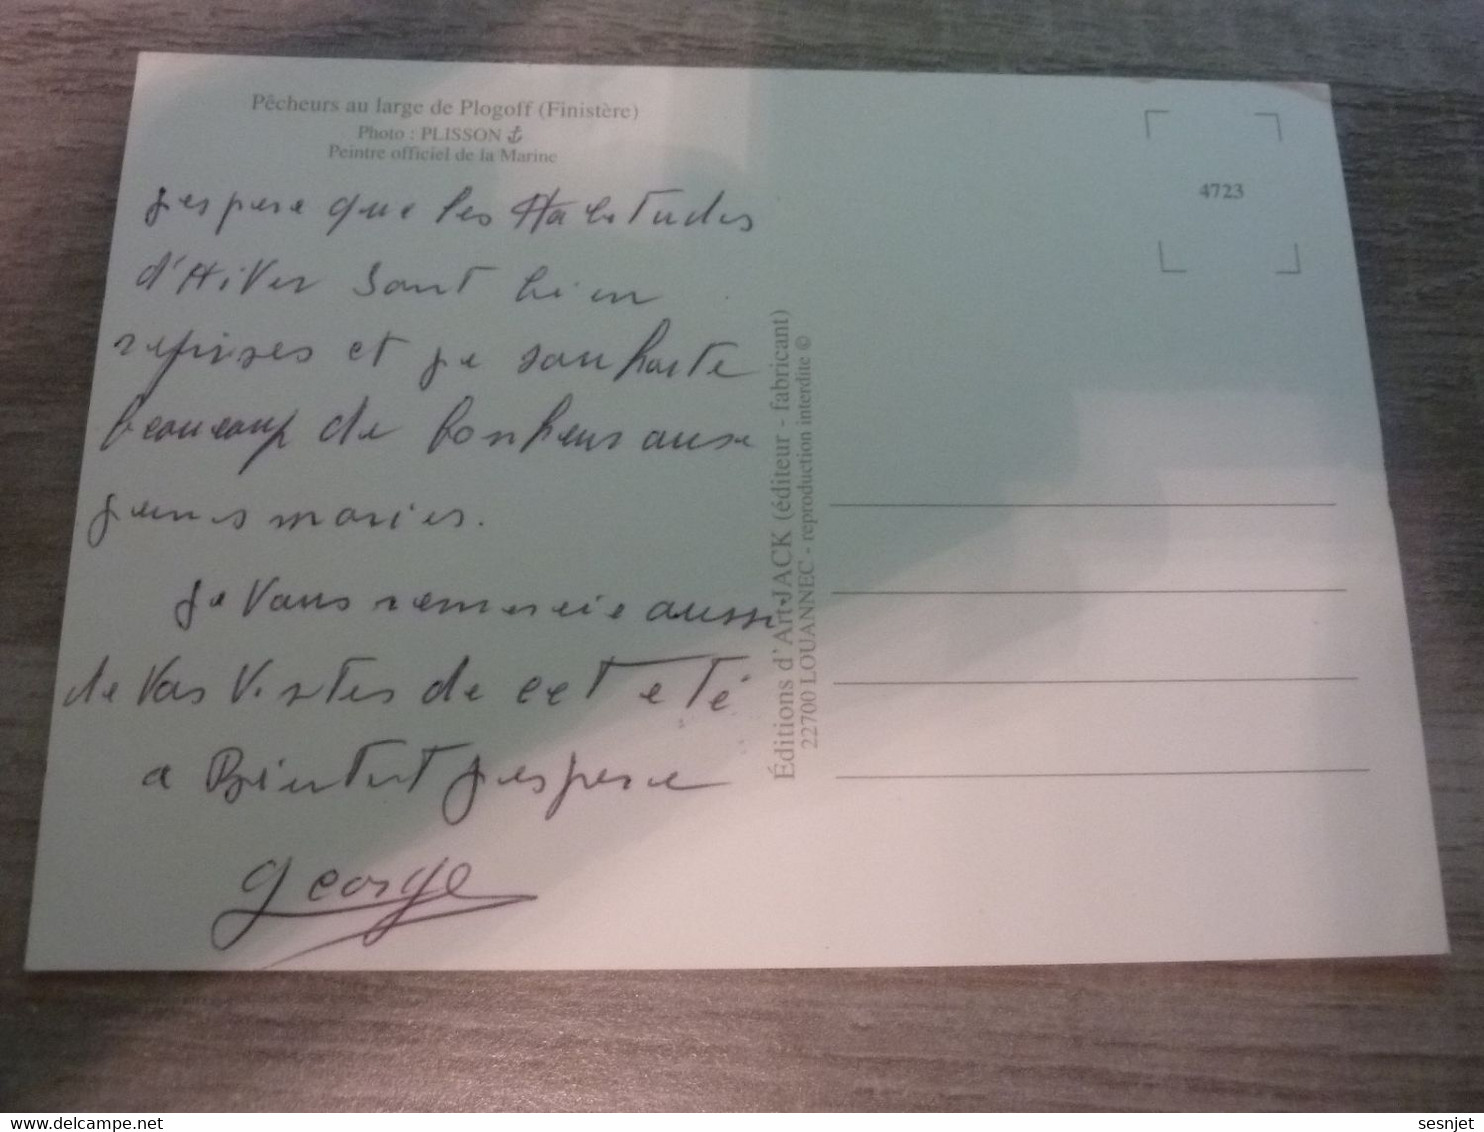 Pêcheurs au large de Plogoff (Finistère)
Photo : PLISSON ⚓
Peintre officiel de la Marine
j'espere que les Habitudes
d'Hiver sont bien
reprises et je souhaite
beaucoup de bonheur aux
jeunes maries.
je vous remercie aussi
de vos visites de cet eté
a Bientot j'espere
george
4723
Éditions d'Art JACK (éditeur - fabricant)
22700 LOUANNEC - reproduction interdite ©
sesnjet